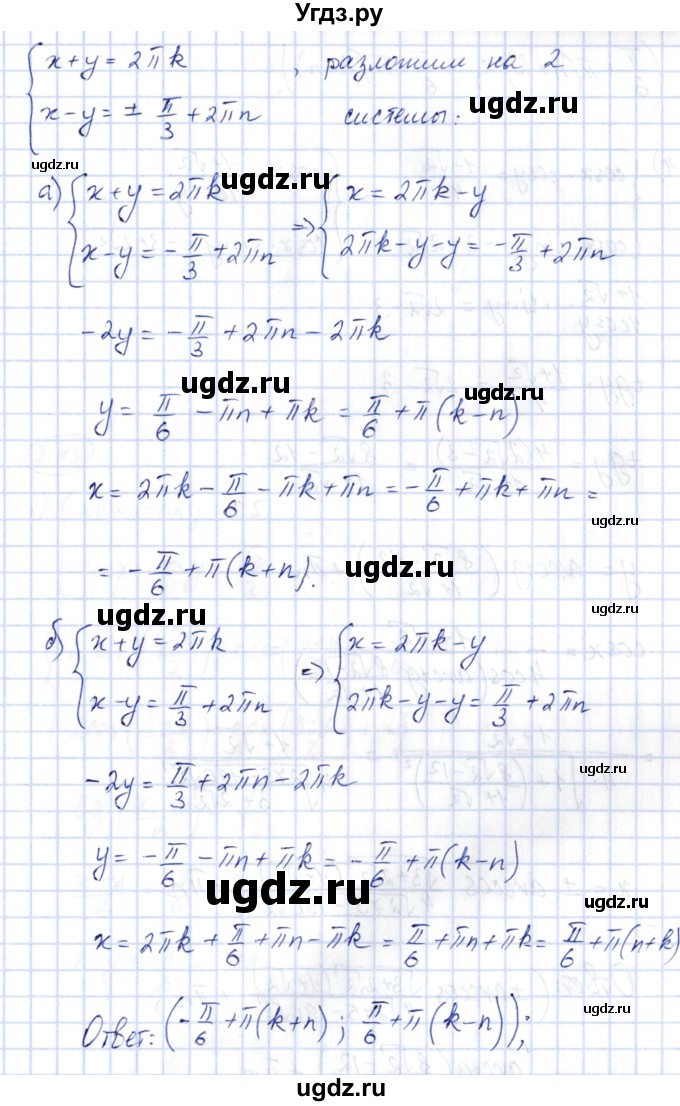 Угдз.ру
{ x+y = 2πk , разложим на 2
x-y = ± π/3 + 2πn системы:
ugdz.ru
ugdz.ru
ugdz.ru
а) { x+y = 2πk => { x = 2πk-y
x-y = -π/3 + 2πn 2πk-y-y = -π/3 + 2πn
ugdz.ru
-2y = -π/3 + 2πn - 2πk
ugdz.ru
y = π/6 - πn + πk = π/6 + π(k-n)
x = 2πk - π/6 - πk + πn = -π/6 + πk + πn =
ugdz.ru
= -π/6 + π(k+n).
ugdz.ru
ugdz.ru
ugdz.ru
б) { x+y = 2πk => { x = 2πk-y
x-y = π/3 + 2πn 2πk-y-y = π/3 + 2πn
-2y = π/3 + 2πn - 2πk
ugdz.ru
y = -π/6 - πn + πk = -π/6 + π(k-n)
ugdz.ru
ugdz.ru
x = 2πk + π/6 + πn - πk = π/6 + πn + πk = π/6 + π(n+k)
Ответ: (-π/6 + π(k+n); π/6 + π(k-n));
ugdz.ru
ugdz.ru